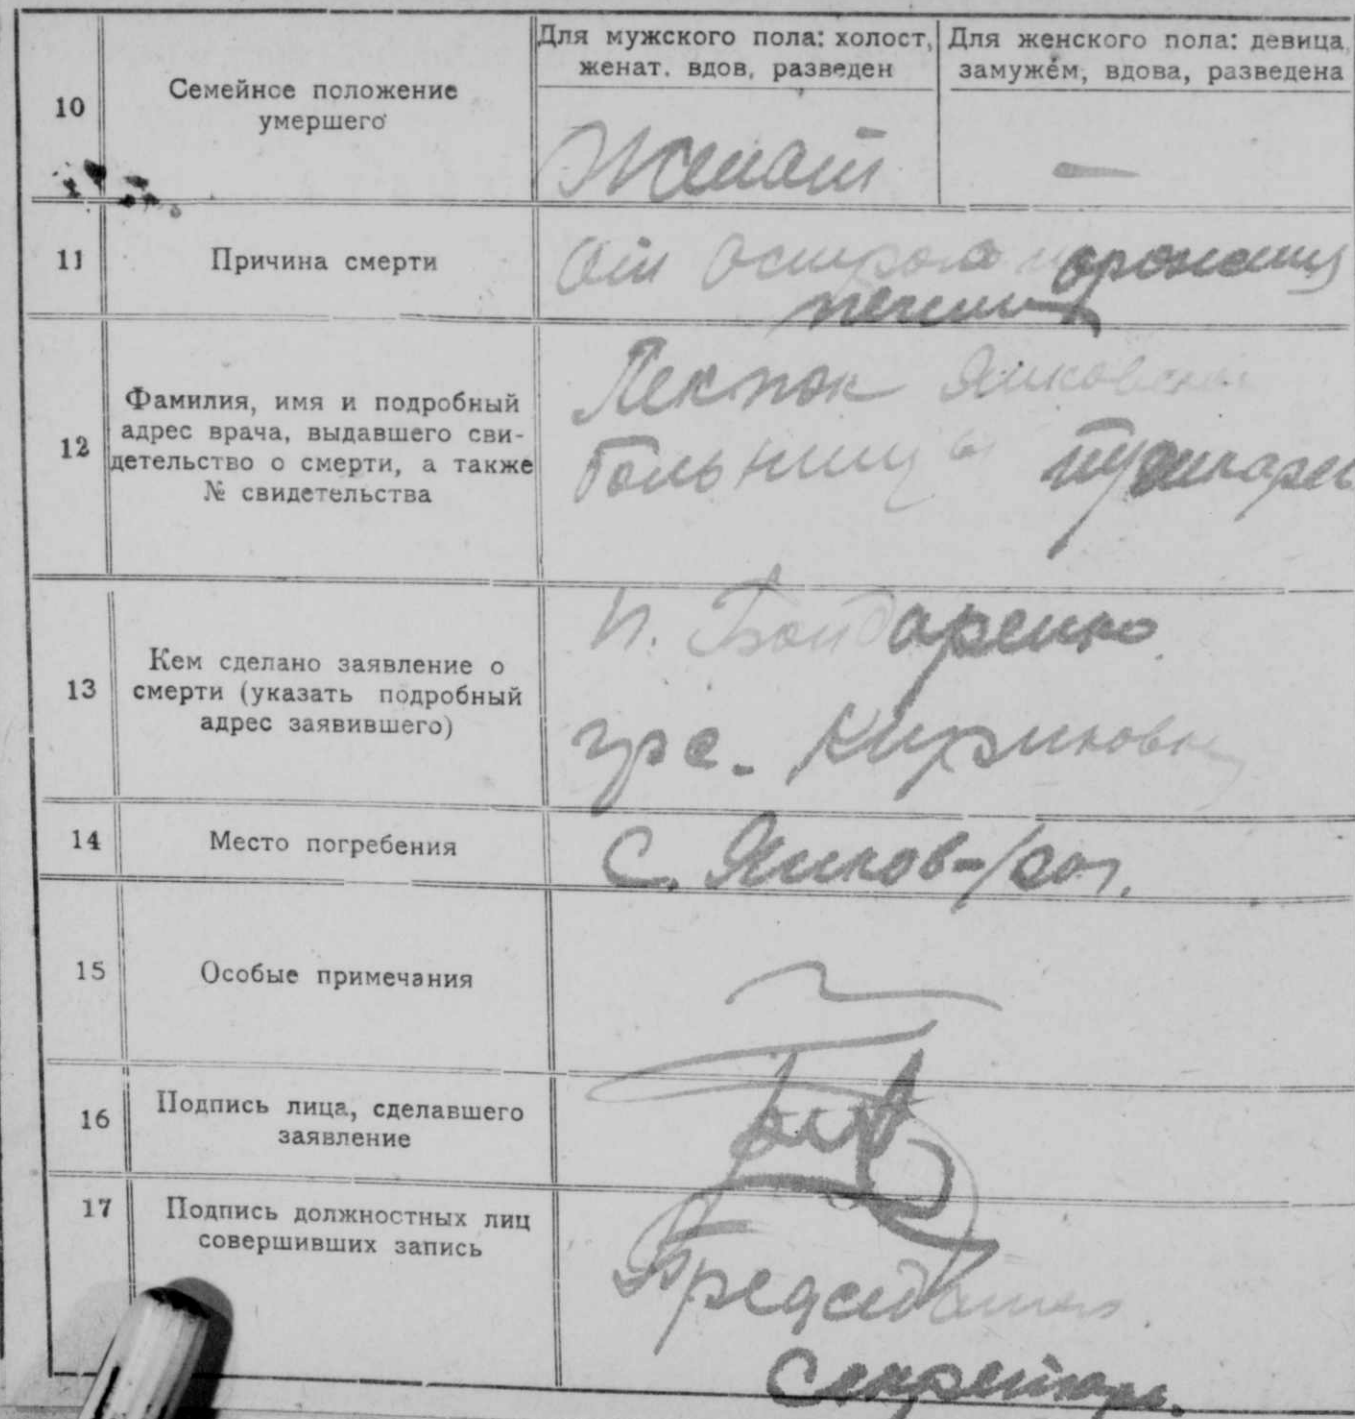 Для мужского пола: холост, женат. вдов, разведен
Для женского пола: девица, замужем, вдова, разведена
10
Семейное положение
умершего
Женат
—
11
Причина смерти
От острого
печени
12
Фамилия, имя и подробный
адрес врача, выдавшего сви-
детельство о смерти, а также
№ свидетельства
Лекпом
больницы
13
Кем сделано заявление о
смерти (указать подробный
адрес заявившего)
П. Бондаренко
14
Место погребения
С.
15
Особые примечания
16
Подпись лица, сделавшего
заявление
17
Подпись должностных лиц
совершивших запись
Председатель
Секретарь.